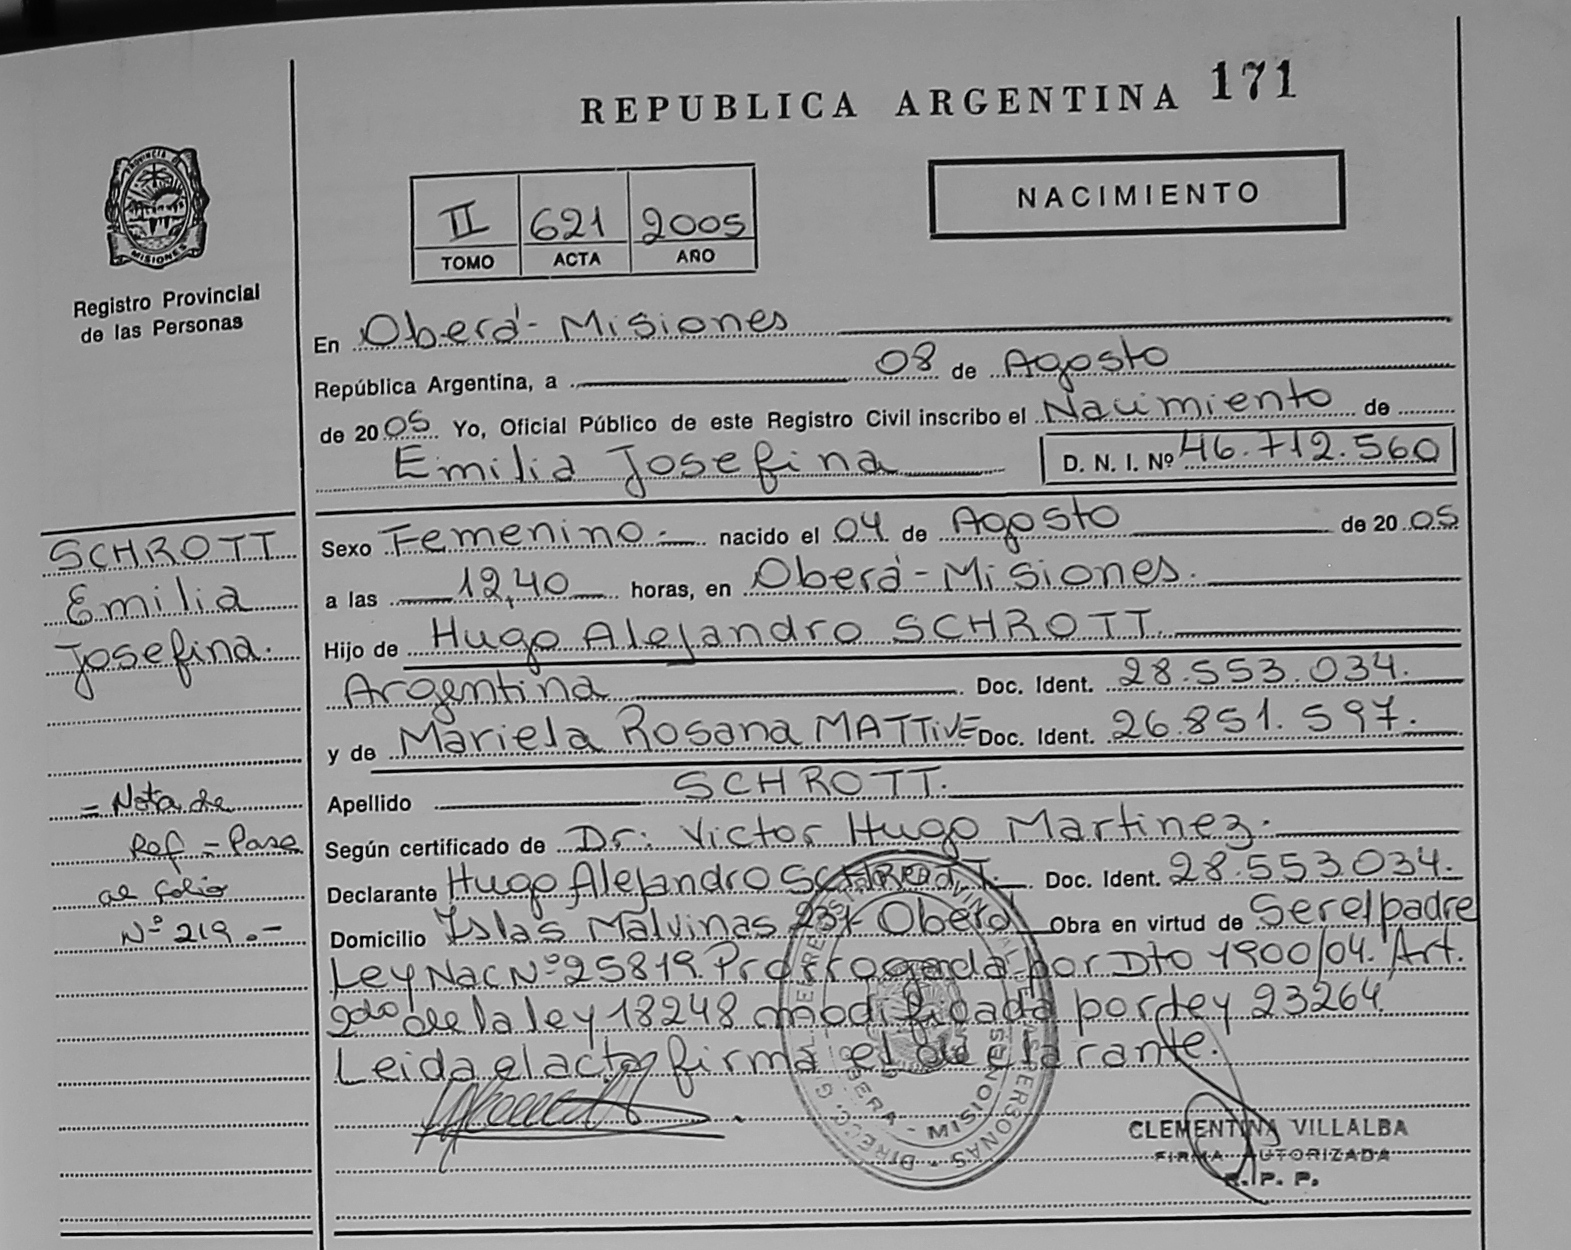 REPUBLICA ARGENTINA 171
PROVINCIA DE
MISIONES
Registro Provincial
de las Personas
II 621 2005
TOMO ACTA AÑO
NACIMIENTO
En Oberá - Misiones
República Argentina, a 08 de Agosto
de 2005 Yo, Oficial Público de este Registro Civil inscribo el Nacimiento de
Emilia Josefina D. N. I. Nº 46.712.560
Sexo Femenino.- nacido el 04 de Agosto de 2005
a las 12,40 horas, en Oberá - Misiones.
Hijo de Hugo Alejandro SCHROTT.
Argentina Doc. Ident. 28.553.034.
y de Mariela Rosana MATTIVE Doc. Ident. 26.851.597.
Apellido SCHROTT.
Según certificado de Dr: Victor Hugo Martinez.
Declarante Hugo Alejandro SCHROTT. Doc. Ident. 28.553.034.
Domicilio Islas Malvinas Oberá Obra en virtud de Ser el padre
Ley Nac Nº 25819. Prorrogada por Dto 1900/04. Art.
2do de la ley 18248 modificada por ley 23264.
Leida el acta firma el declarante.
SCHROTT
Emilia
Josefina.
= Nota de
Ref = Pase
al folio
Nº 219.-
OBERA - MISIONES
CLEMENTINA VILLALBA
FIRMA AUTORIZADA
R. P. P.